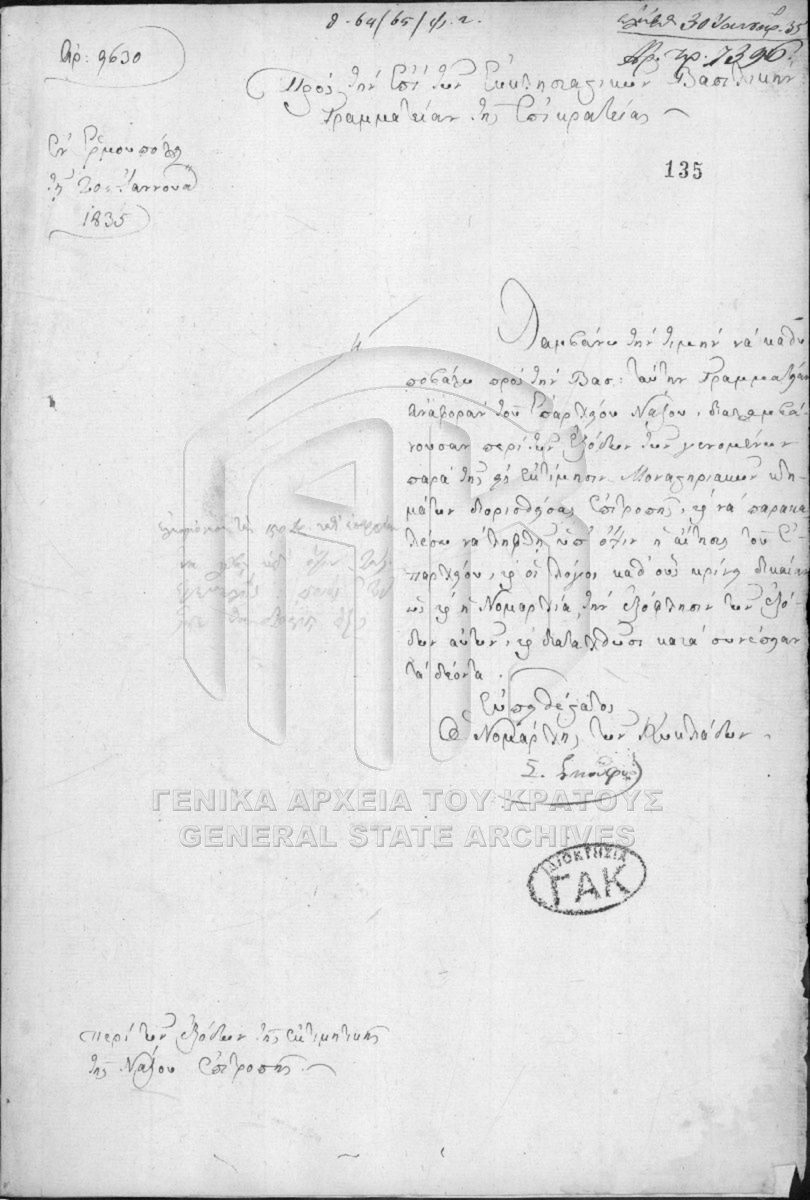 θ. 64/65/φ. 2.
30 Ἰανουαρ. 35
Ἀρ. πρ. 7396
Ἀρ: 9630
Πρὸς τὴν ἐπὶ τῶν Ἐκκλησιαστικῶν Βασιλικὴν
Γραμματείαν τῆς Ἐπικρατείας
Ἐν Ἑρμουπόλει
τῇ 20 Ἰαννουα
1835
135
Λαμβάνω τὴν τιμὴν νὰ καθυ
ποβάλω πρὸς τὴν Βασ: ταύτην Γραμματείαν
ἀναφορὰν τοῦ Ἐπάρχου Νάξου, διαλαμβά
νουσαν περὶ τῶν ἐξόδων τῶν γενομένων
παρὰ τῆς εἰς ἐκτίμησιν Μοναστηριακῶν κτη
μάτων διορισθείσας Ἐπιτροπῆς, καὶ νὰ παρακα
λέσω νὰ ληφθῇ ὑπ' ὄψιν ἡ αἴτησις τοῦ Ἐ
πάρχου, καὶ οἱ λόγοι καθ' οὓς κρίνει δικαίαν
ὡς καὶ ἡ Νομαρχία, τὴν ἐξόφλησιν τῶν ἐξό
δων αὐτῶν, καὶ διαταχθῶσι κατὰ συνέπειαν
τὰ δέοντα.
Εὐπειθέστατος
Ὁ Νομάρχης τῶν Κυκλάδων
ΓΕΝΙΚΑ ΑΡΧΕΙΑ ΤΟΥ ΚΡΑΤΟΥΣ
GENERAL STATE ARCHIVES
ΙΔΙΟΚΤΗΣΙΑ
ΓΑΚ
Περὶ τῶν ἐξόδων τῆς ἐκτιμητικῆς
τῆς Νάξου Ἐπιτροπῆς